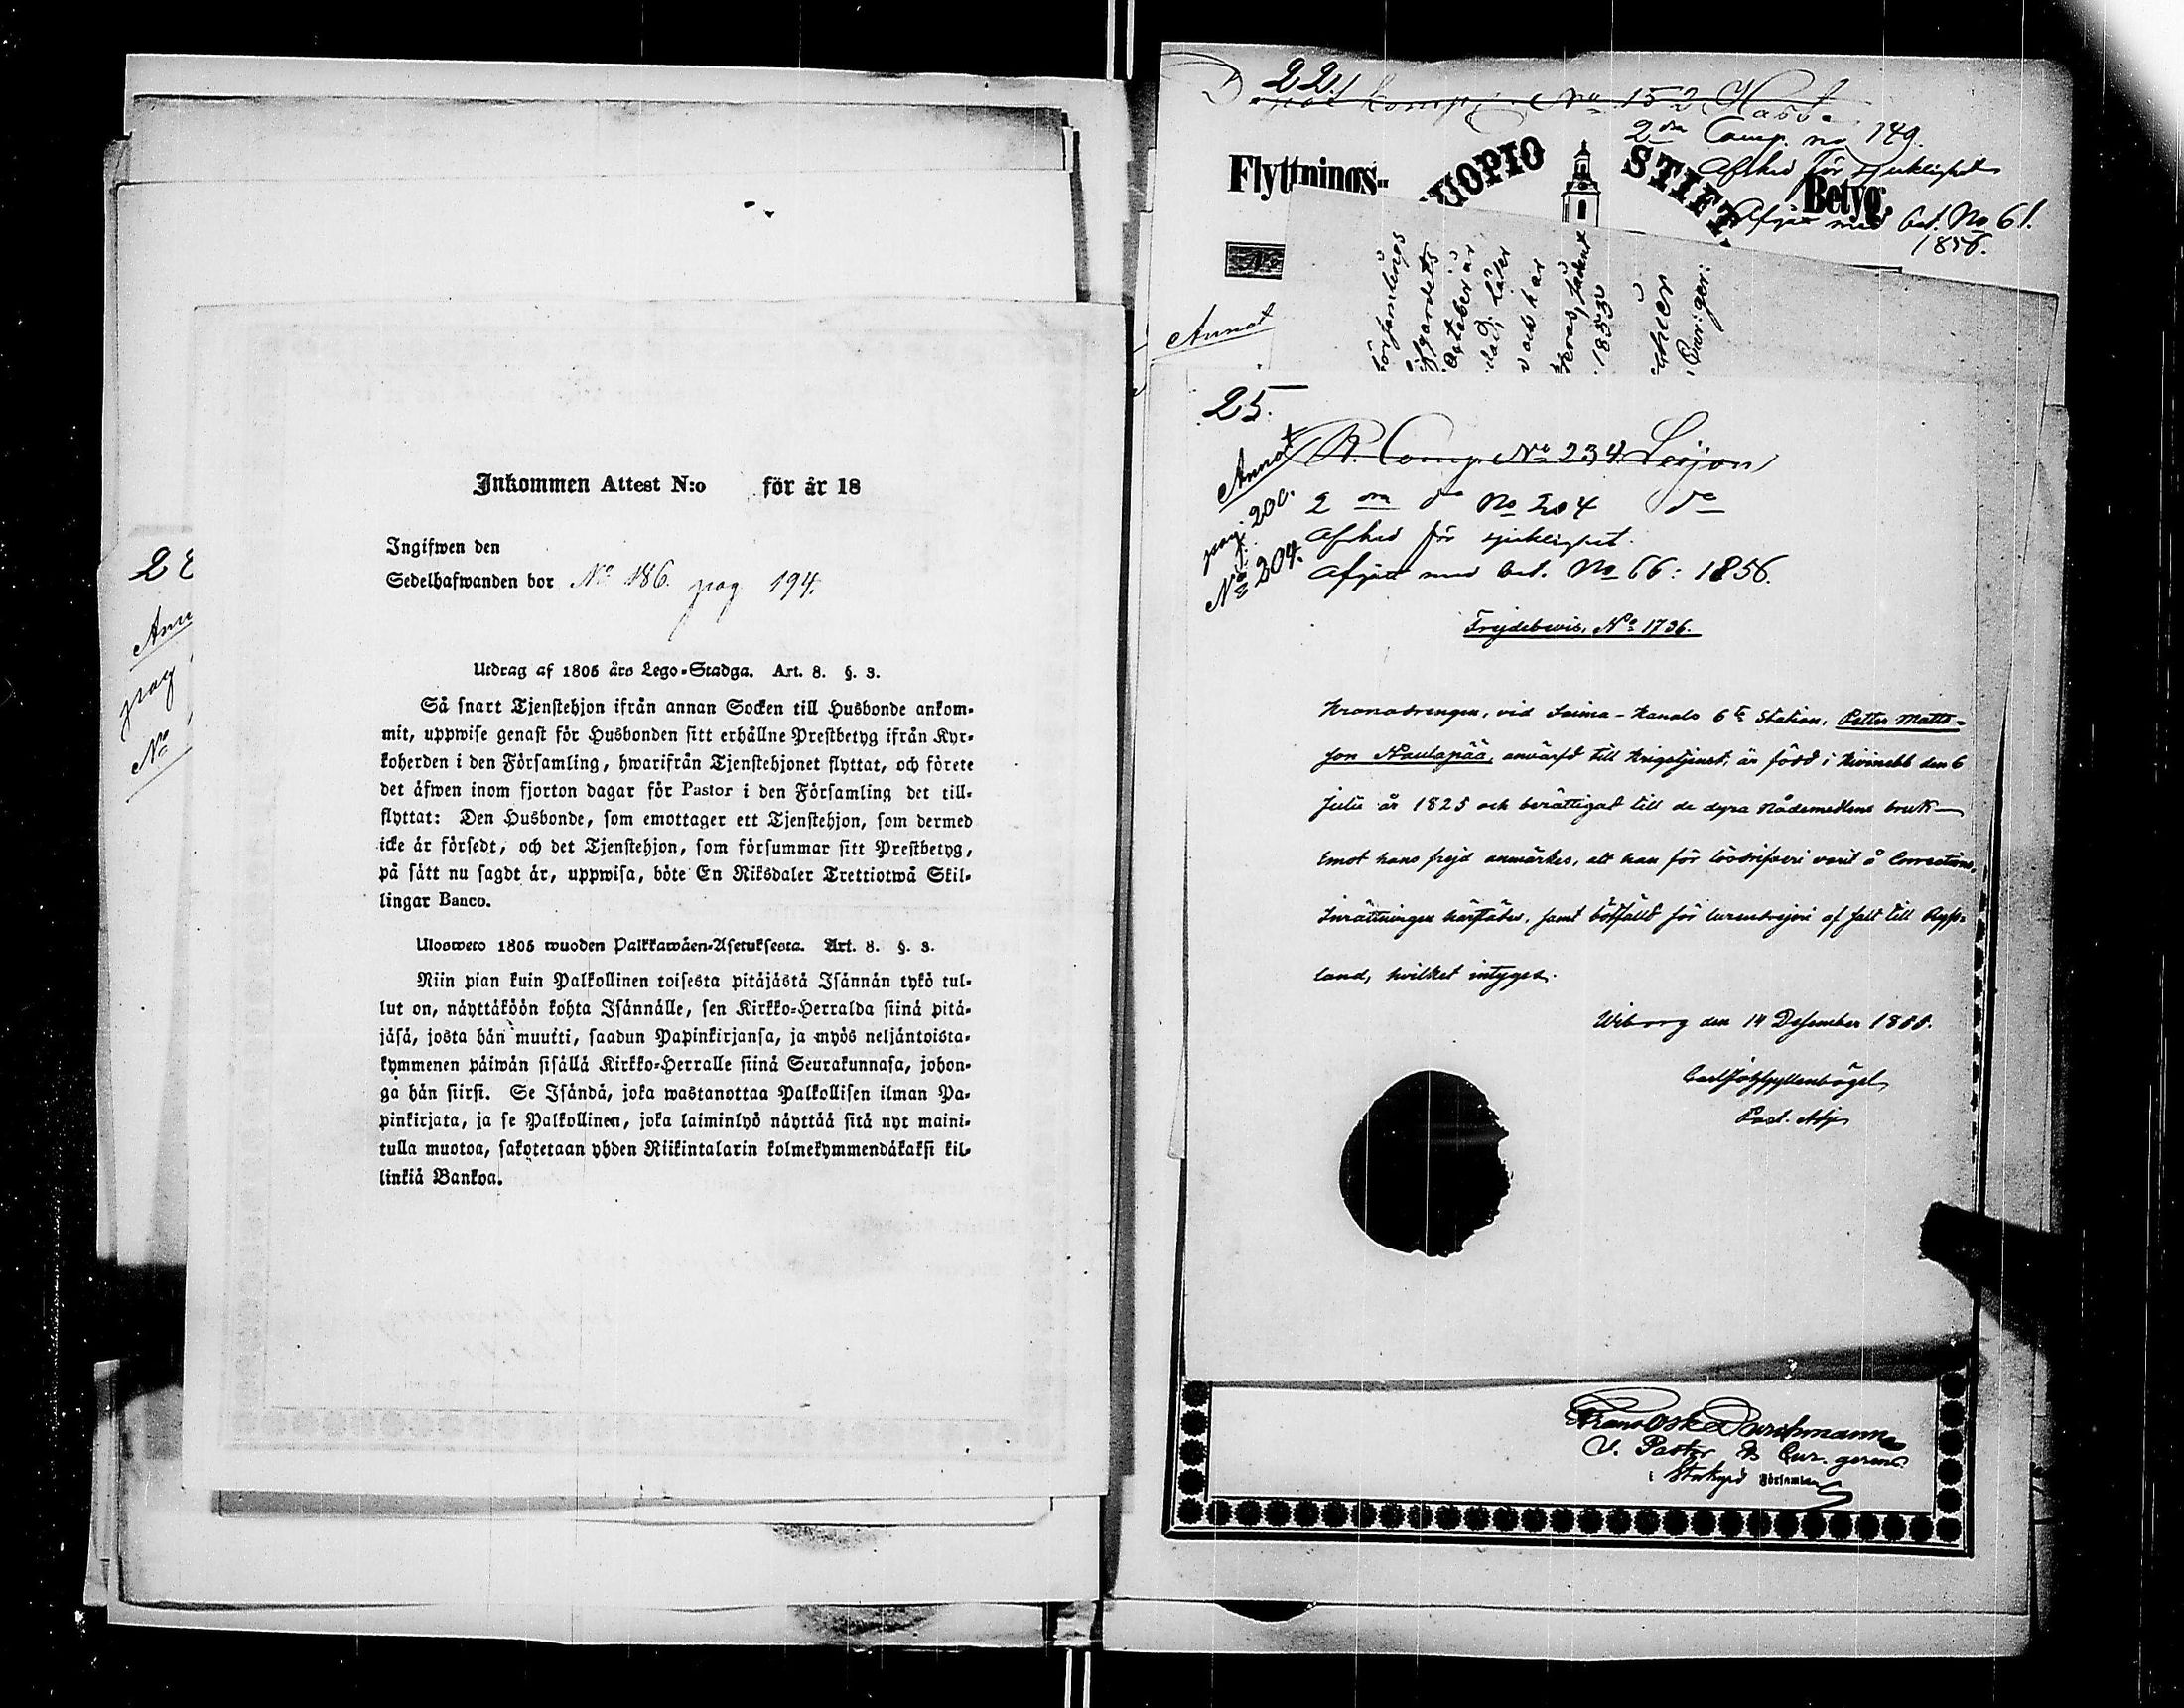 Inkommen Attest N:o för år 18
Ingifwen den
Sedelhafwanden bor No 186. pag 194.
Utdrag af 1805 års Lego-Stadga. Art. 8. §. 3.
Så snart Tjenstehjon ifrån annan Socken till Husbonde ankom-
mit, uppwise genast för Husbonden sitt erhållne Prestbetyg ifrån Kyr-
koherden i den Församling, hwarifrån Tjenstehjonet flyttat, och förete
det äfwen inom fjorton dagar för Pastor i den Församling det till-
flyttat: Den Husbonde, som emottager ett Tjenstehjon, som dermed
icke är försedt, och det Tjenstehjon, som försummar sitt Prestbetyg,
på sätt nu sagdt är, uppwisa, böte En Riksdaler Trettiotwå Skil-
lingar Banco.
Ulosweto 1805 wuoden Palkkawäen-Asetuksesta. Art. 8. §. 3.
Niin pian kuin Palkollinen toisesta pitäjästä Isännän tykö tul-
lut on, näyttäköön kohta Isännälle, sen Kirkko-Herralda siinä pitä-
jäsä, josta hän muutti, saadun Papinkirjansa, ja myös neljäntoista-
kymmenen päiwän sisällä Kirkko-Herralle siinä Seurakunnasa, johon-
ga hän siirsi. Se Isändä, joka wastanottaa Palkollisen ilman Pa-
pinkirjata, ja se Palkollinen, joka laiminlyö näyttää sitä nyt maini-
tulla muotoa, sakotetaan yhden Riikintalarin kolmekymmendäkaksi kil-
linkiä Bankoa.
pag
No
22
Komp. No 152
2dra Comp. no 149.
Afsked för sjuklighet
Afgått med bet. No 61.
1856.
Flyttnings-
UOPIO
STIFT.
Betyg.
Annot
församlings
October
och har
1853
25.
Annot
pag. 200.
No 204.
R. Comp. No 234 Lejon
2 dra do No 204 do
Afsked för sjuklighet.
Afgått med bet. No 66: 1856.
Frejdebevis. No 1736.
Kronodrengen, vid Saima-Kanals 6te Station, Petter Matts-
son Naulapää, anvärfd till Krigstjenst, är född i Kivinebb den 6
Julii år 1825 och berättigad till de dyra Nådemedlens bruk
Emot hans frejd anmärkes, att han för lösdrifveri varit å Corrections-
Inrättningen härstädes, samt bötfälld för lurendrejeri af salt till Ryss-
land, hvilket intygas.
Wiborg den 14 December 1855.
Past. Adj.
V. Pastor & Cur. gerens
i Storkyrö Församling